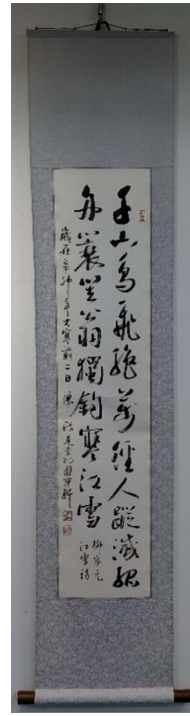 千山鳥飛絕萬徑人蹤滅孤
舟蓑笠翁獨釣寒江雪
柳宗元
江雪詩
大寒前二日